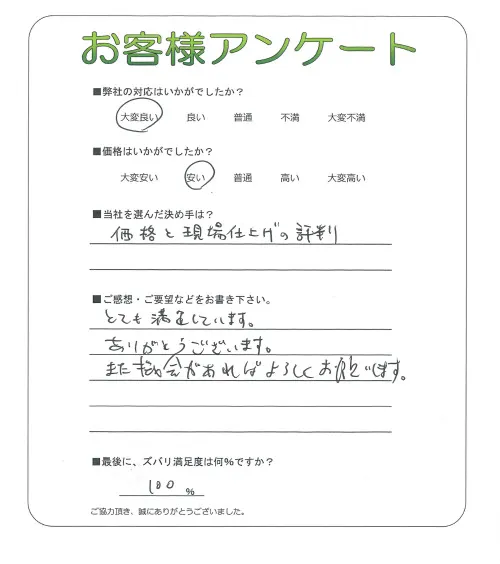 お客様アンケート
■弊社の対応はいかがでしたか?
大変良い 良い 普通 不満 大変不満
■価格はいかがでしたか?
大変安い 安い 普通 高い 大変高い
■当社を選んだ決め手は?
価格と現場仕上げの評判
■ご感想・ご要望などをお書き下さい。
とても満足しています。
ありがとうございます。
また機会があればよろしくお願います。
■最後に、ズバリ満足度は何%ですか?
100 %
ご協力頂き、誠にありがとうございました。